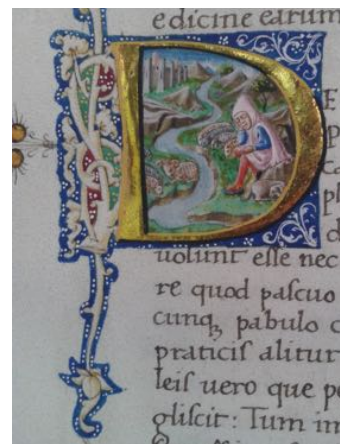 edicine earum
D E
p
ca
pl
d
uolunt esse nec
re quod pascuo
cunqꝫ pabulo c
praticis alitur
leis uero que pe
gliscit: Tum im